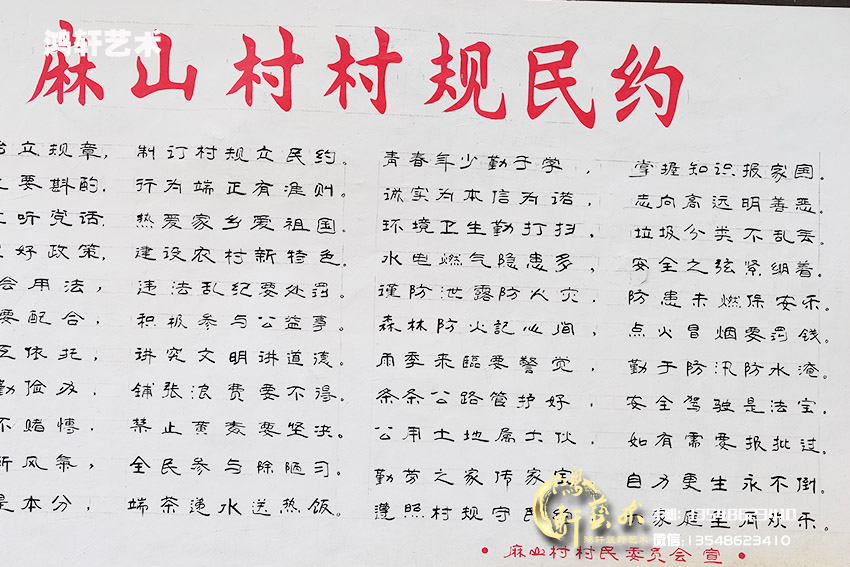 鸿轩艺术
麻山村村规民约
立规章，制订村规立民约。
要斟酌，行为端正有准则。
听党话，热爱家乡爱祖国。
好政策，建设农村新特色。
会用法，违法乱纪要处罚。
要配合，积极参与公益事。
依托，讲究文明讲道德。
勤俭办，铺张浪费要不得。
不赌博，禁止黄毒要坚决。
新风气，全民参与除陋习。
是本分，端茶递水送热饭。
青春年少勤于学，掌握知识报家国。
诚实为本信为诺，志向高远明善恶。
环境卫生勤打扫，垃圾分类不乱丢。
水电燃气隐患多，安全之弦紧绷着。
谨防泄露防火灾，防患未燃保安乐。
森林防火记心间，点火冒烟要罚钱。
雨季来临要警觉，勤于防汛防水淹。
条条公路管护好，安全驾驶是法宝。
公用土地属大伙，如有需要报批过。
勤劳之家传家宝，自力更生永不倒。
遵照村规守民约，家庭生活欢乐。
•麻山村村民委员会 宣•
鸿轩艺术
手机：13548623410
微信：13548623410